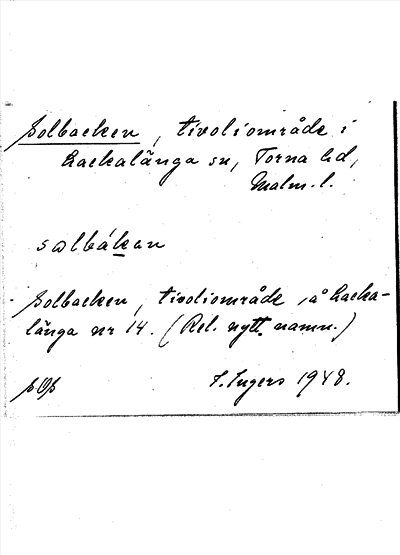 Solbacken, tivoliområde i
Lackalänga sn, Torna hd,
Malm. l.
solbákan
Solbacken, tivoliområde å Lacka-
länga nr 14. (Rel. nytt namn.)
I. Ingers 1948.